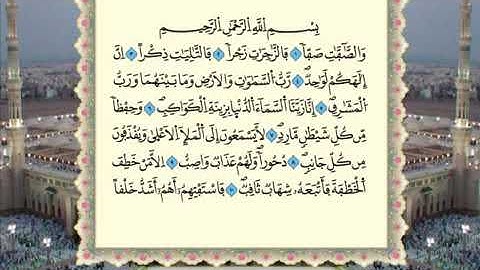 بِسْمِ اللَّهِ الرَّحْمَٰنِ الرَّحِيمِ
وَالصَّٰٓفَّٰتِ صَفّٗا ١ فَالزَّٰجِرَٰتِ زَجْرٗا ٢ فَالتَّٰلِيَٰتِ ذِكْرًا ٣ إِنَّ
إِلَٰهَكُمْ لَوَٰحِدٞ ٤ رَّبُّ السَّمَٰوَٰتِ وَالْأَرْضِ وَمَا بَيْنَهُمَا وَرَبُّ
الْمَشَٰرِقِ ٥ إِنَّا زَيَّنَّا السَّمَآءَ الدُّنْيَا بِزِينَةِ الْكَوَاكِبِ ٦ وَحِفْظٗا
مِّن كُلِّ شَيْطَٰنٖ مَّارِدٖ ٧ لَا يَسْمَعُونَ إِلَى الْمَلَإِ الْأَعْلَىٰ وَيُقْذَفُونَ
مِن كُلِّ جَانِبٖ ٨ دُحُورٗا وَلَهُمْ عَذَابٞ وَاصِبٌ ٩ إِلَّا مَنْ خَطِفَ
الْخَطْفَةَ فَأَتْبَعَهُۥ شِهَابٞ ثَاقِبٞ ١٠ فَاسْتَفْتِهِمْ أَهُمْ أَشَدُّ خَلْقًا